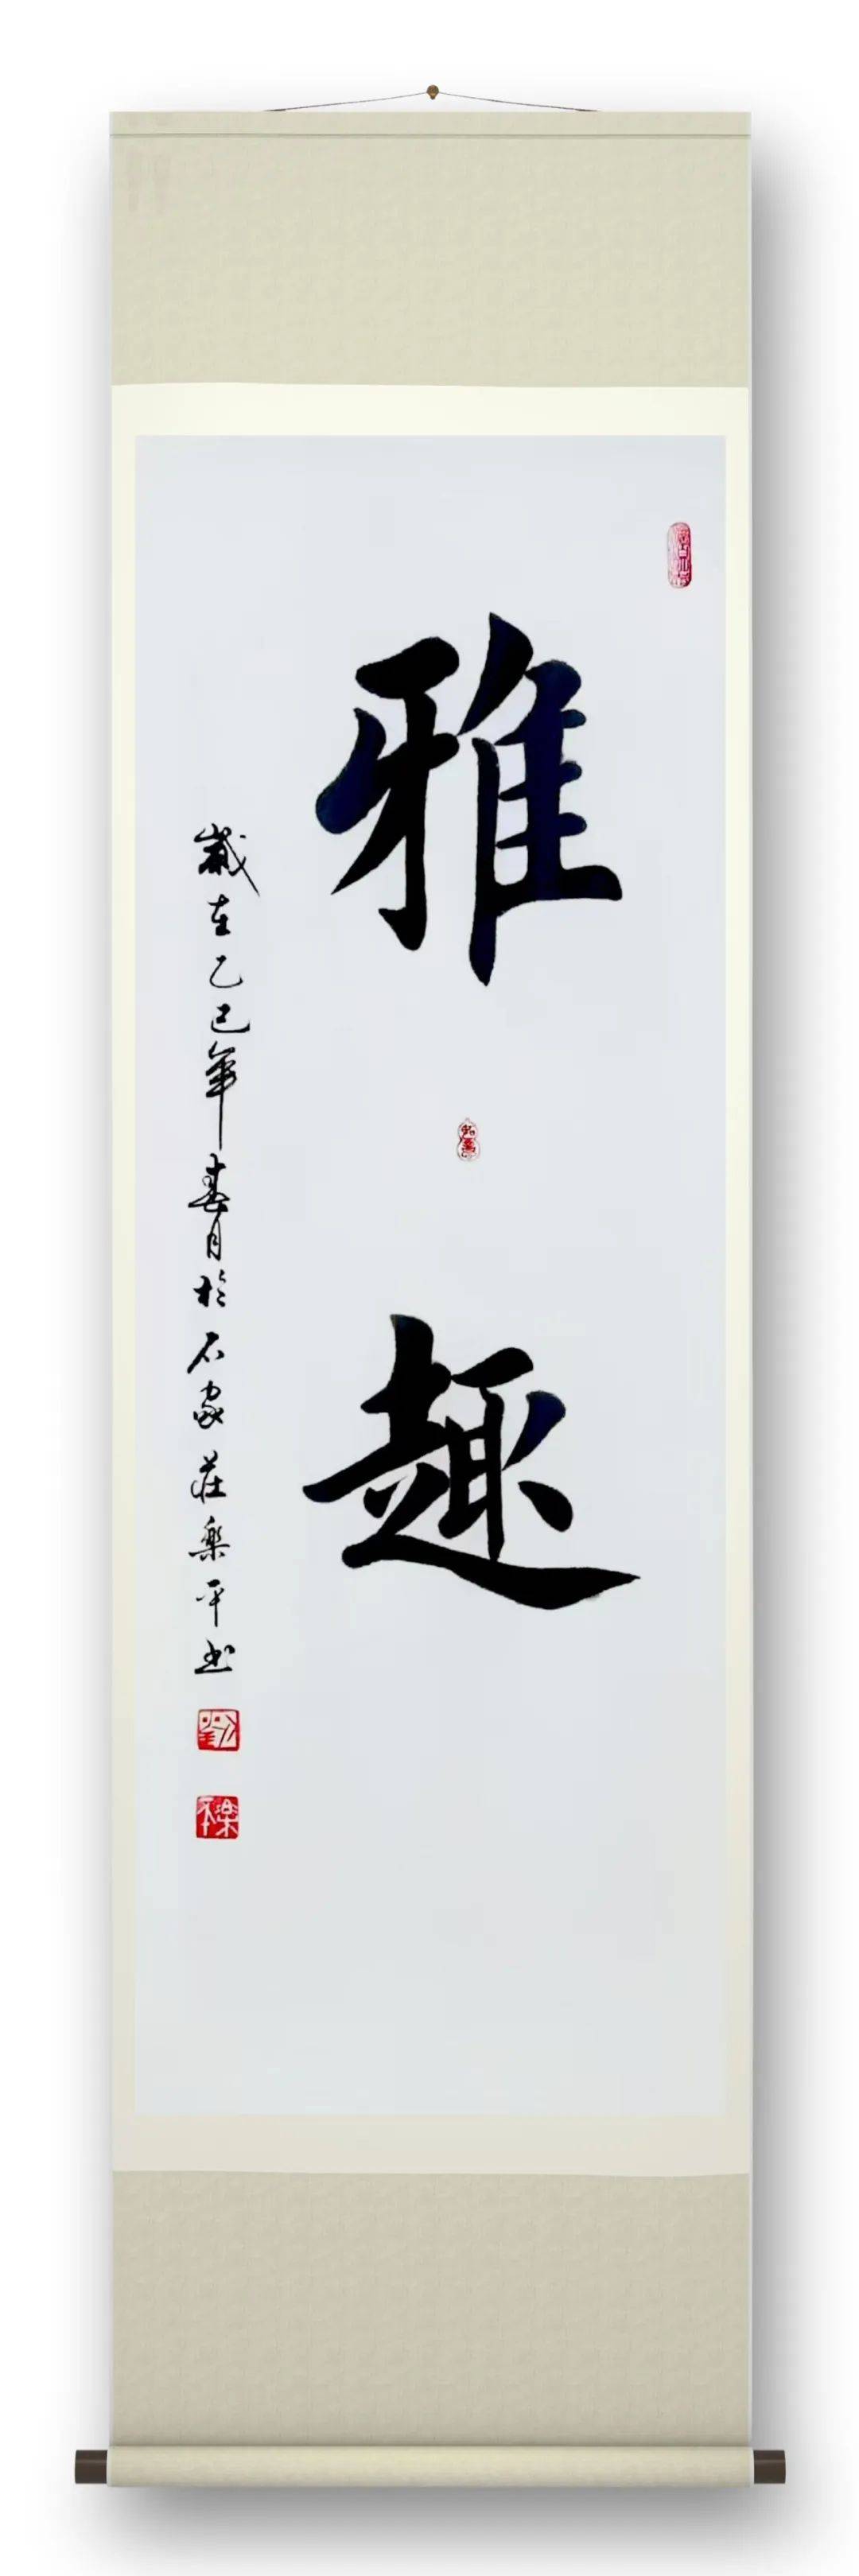 雅趣
歲在乙巳年春月於石家莊樂平書